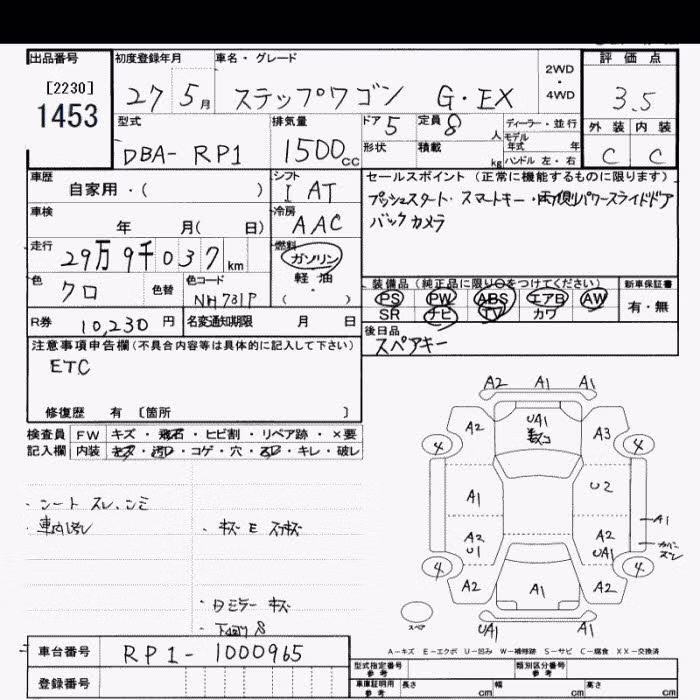 出品番号
[2230]
1453
初度登録年月
27 5月
車名・グレード
ステップワゴン G・EX
2WD
・
4WD
評価点
3.5
型式
DBA- RP1
排気量
1500cc
ドア 5
形状
定員 8人
積載 kg
ディーラー・並行
モデル
年式 年
ハンドル 左・右
外装 内装
C C
車歴
自家用・( )
シフト
I AT
車検
年 月( 日)
冷房
AAC
走行
29万9千037km
燃料
ガソリン
軽油
・
( )
色
クロ
色替
色コード
NH731P
R券 10,230円
名変通知期限 月 日
セールスポイント(正常に機能するものに限ります)
プッシュスタート・スマートキー・両側パワースライドドア
バックカメラ
装備品(純正品に限り○をつけてください)
PS PW ABS エアB AW
SR ナビ TV カワ
新車保証書
有・無
後日品
スペアキー
注意事項申告欄(不具合内容等は具体的に記入して下さい)
ETC
修復歴 有 〔箇所 〕
検査員
記入欄
FW キズ・飛石・ヒビ割・リペア跡・×要
内装 キズ・汚レ・コゲ・穴・スレ・キレ・破レ
・シート スレ、シミ
・キズ E
・ミラー キズ
A2 A1 A1
A2 UA1 A3
4 4
A1 U2
A1
A2 A2
U1 UA1
4 4
A2 A1 A2
スペア
UA1 A1
A-キズ E-エクボ U-凹み W-補修跡 S-サビ C-腐食 XX-交換済
車台番号 RP1-1000965
登録番号
型式指定番号
参考
類別区分番号
参考
車庫証明用
参考
長さ cm
幅 cm
高さ cm